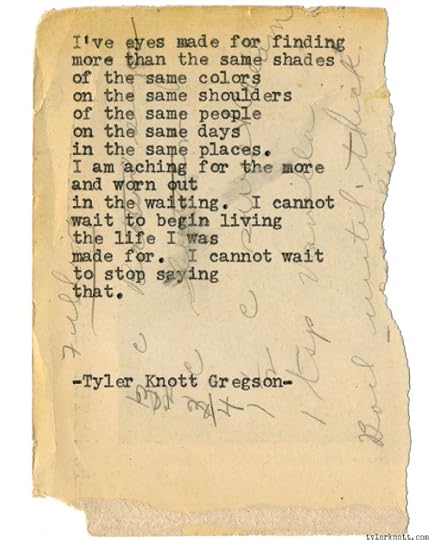 I've eyes made for finding
more than the same shades
of the same colors
on the same shoulders
of the same people
on the same days
in the same places.
I am aching for the more
and worn out
in the waiting.  I cannot
wait to begin living
the life I was
made for.  I cannot wait
to stop saying
that.
-Tyler Knott Gregson-
1 tsp vanilla
Boil until thick
tylerknott.com